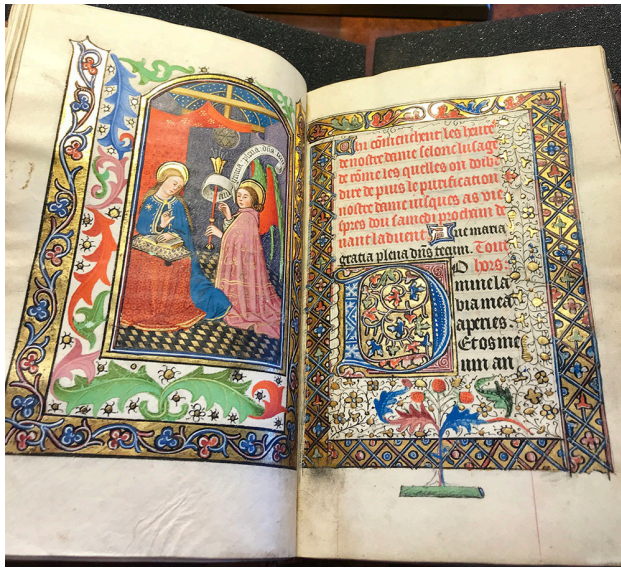 plena dñs
cõmenchent les heures
de nostre dame selonc lusage
de rõme les quelles on doibt
dire de puis le purification
nostre dame iusques as ves
spres dou samedi prochein de
uant laduent. Aue maria
gracia plena dñs tecum. Tout
hors:
Domine la
bia mea
aperies.
Et os me
um an